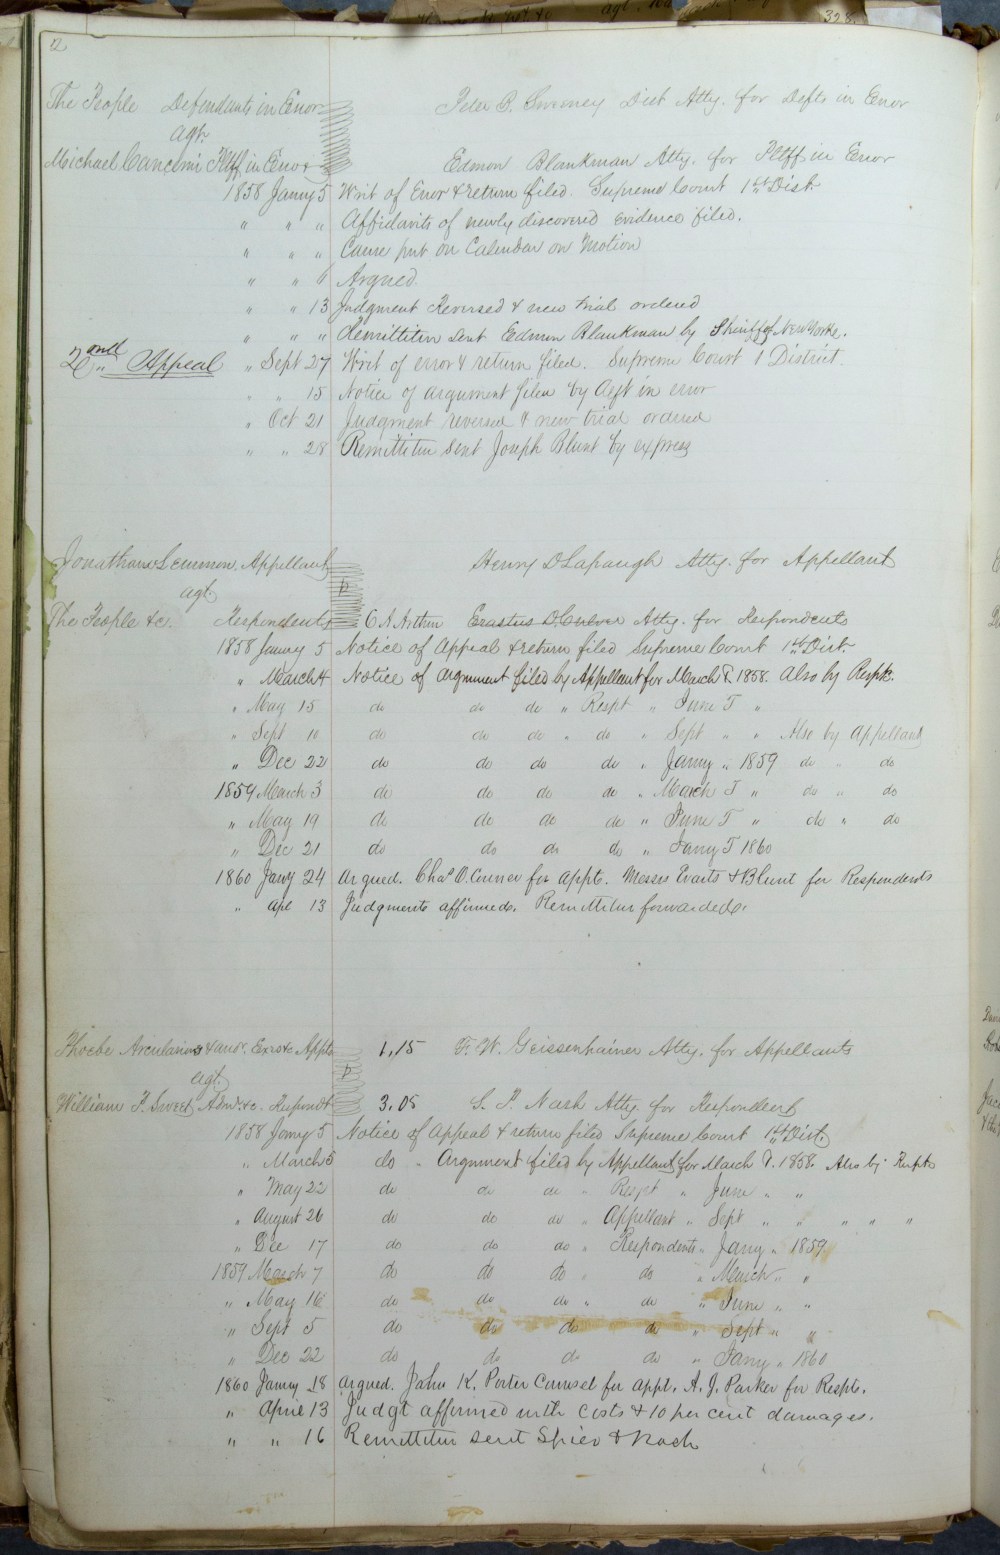 12
328
The People Defendants in Error Peter B. Sweeney Dist Atty. for Defts in Error
agt.
Michael Cancemi Pltff in Error Edmon Blankman Atty. for Pltff in Error
1858 Jany 5 Writ of Error & return filed. Supreme Court 1st Dist.
" " " Affidavits of newly discovered evidence filed.
" " " Cause put on Calendar on Motion
" " 6 Argued.
" " 13 Judgment Reversed & new trial ordered
" " " Remittitur sent Edmon Blankman by Sheriff of New York.
2nd Appeal " Sept 27 Writ of error & return filed. Supreme Court 1 District.
" " 15 Notice of argument filed by Deft in error
" Oct 21 Judgment reversed & new trial ordered
" " 28 Remittitur sent Joseph Blunt by express
Jonathan Lemmon Appellant Henry D Lapaugh Atty. for Appellant
agt.
The People &c. Respondents C A Arthur Erastus D. Culver Atty. for Respondents
1858 Jany 5 Notice of Appeal & return filed Supreme Court 1st Dist.
" March 4 Notice of argument filed by Appellant for March T. 1858. Also by Respts.
" May 15 do do do " Respt " June T "
" Sept 10 do do do " do " Sept " " Also by Appellant
" Dec 22 do do do do " Jany " 1859 do " do
1859 March 3 do do do do " March T " do " do
" May 19 do do do do " June T " do " do
" Dec 21 do do do do " Jany T 1860
1860 Jany 24 Argued. Chas O. Conner for Appt. Messrs Evarts & Blunt for Respondents
" Apl 13 Judgments affirmed. Remittitur forwarded.
Phoebe Arcularius & anor. Exrs &c Appts 1.15 F. W. Geissenhainer Atty. for Appellants
agt.
William F. Sweet, Admr. &c. Respondt 3.05 S. P. Nash Atty. for Respondent
1858 Jany 5 Notice of Appeal & return filed Supreme Court 1st Dist.
" March 5 do " Argument filed by Appellants for March T. 1858. Also by Respts
" May 22 do do do " Respt " June " "
" August 26 do do do " Appellant " Sept " " " " "
" Dec 17 do do do " Respondents " Jany " 1859
1859 March 7 do do do " do " March " "
" May 16 do do do " do " June " "
" Sept 5 do do do do " Sept " "
" Dec 22 do do do do " Jany " 1860
1860 Jany 18 Argued. John K. Porter Counsel for Appt. A. J. Parker for Respts.
" April 13 Judgt affirmed with Costs & 10 per cent damages.
" " 16 Remittitur sent Spier & Nash